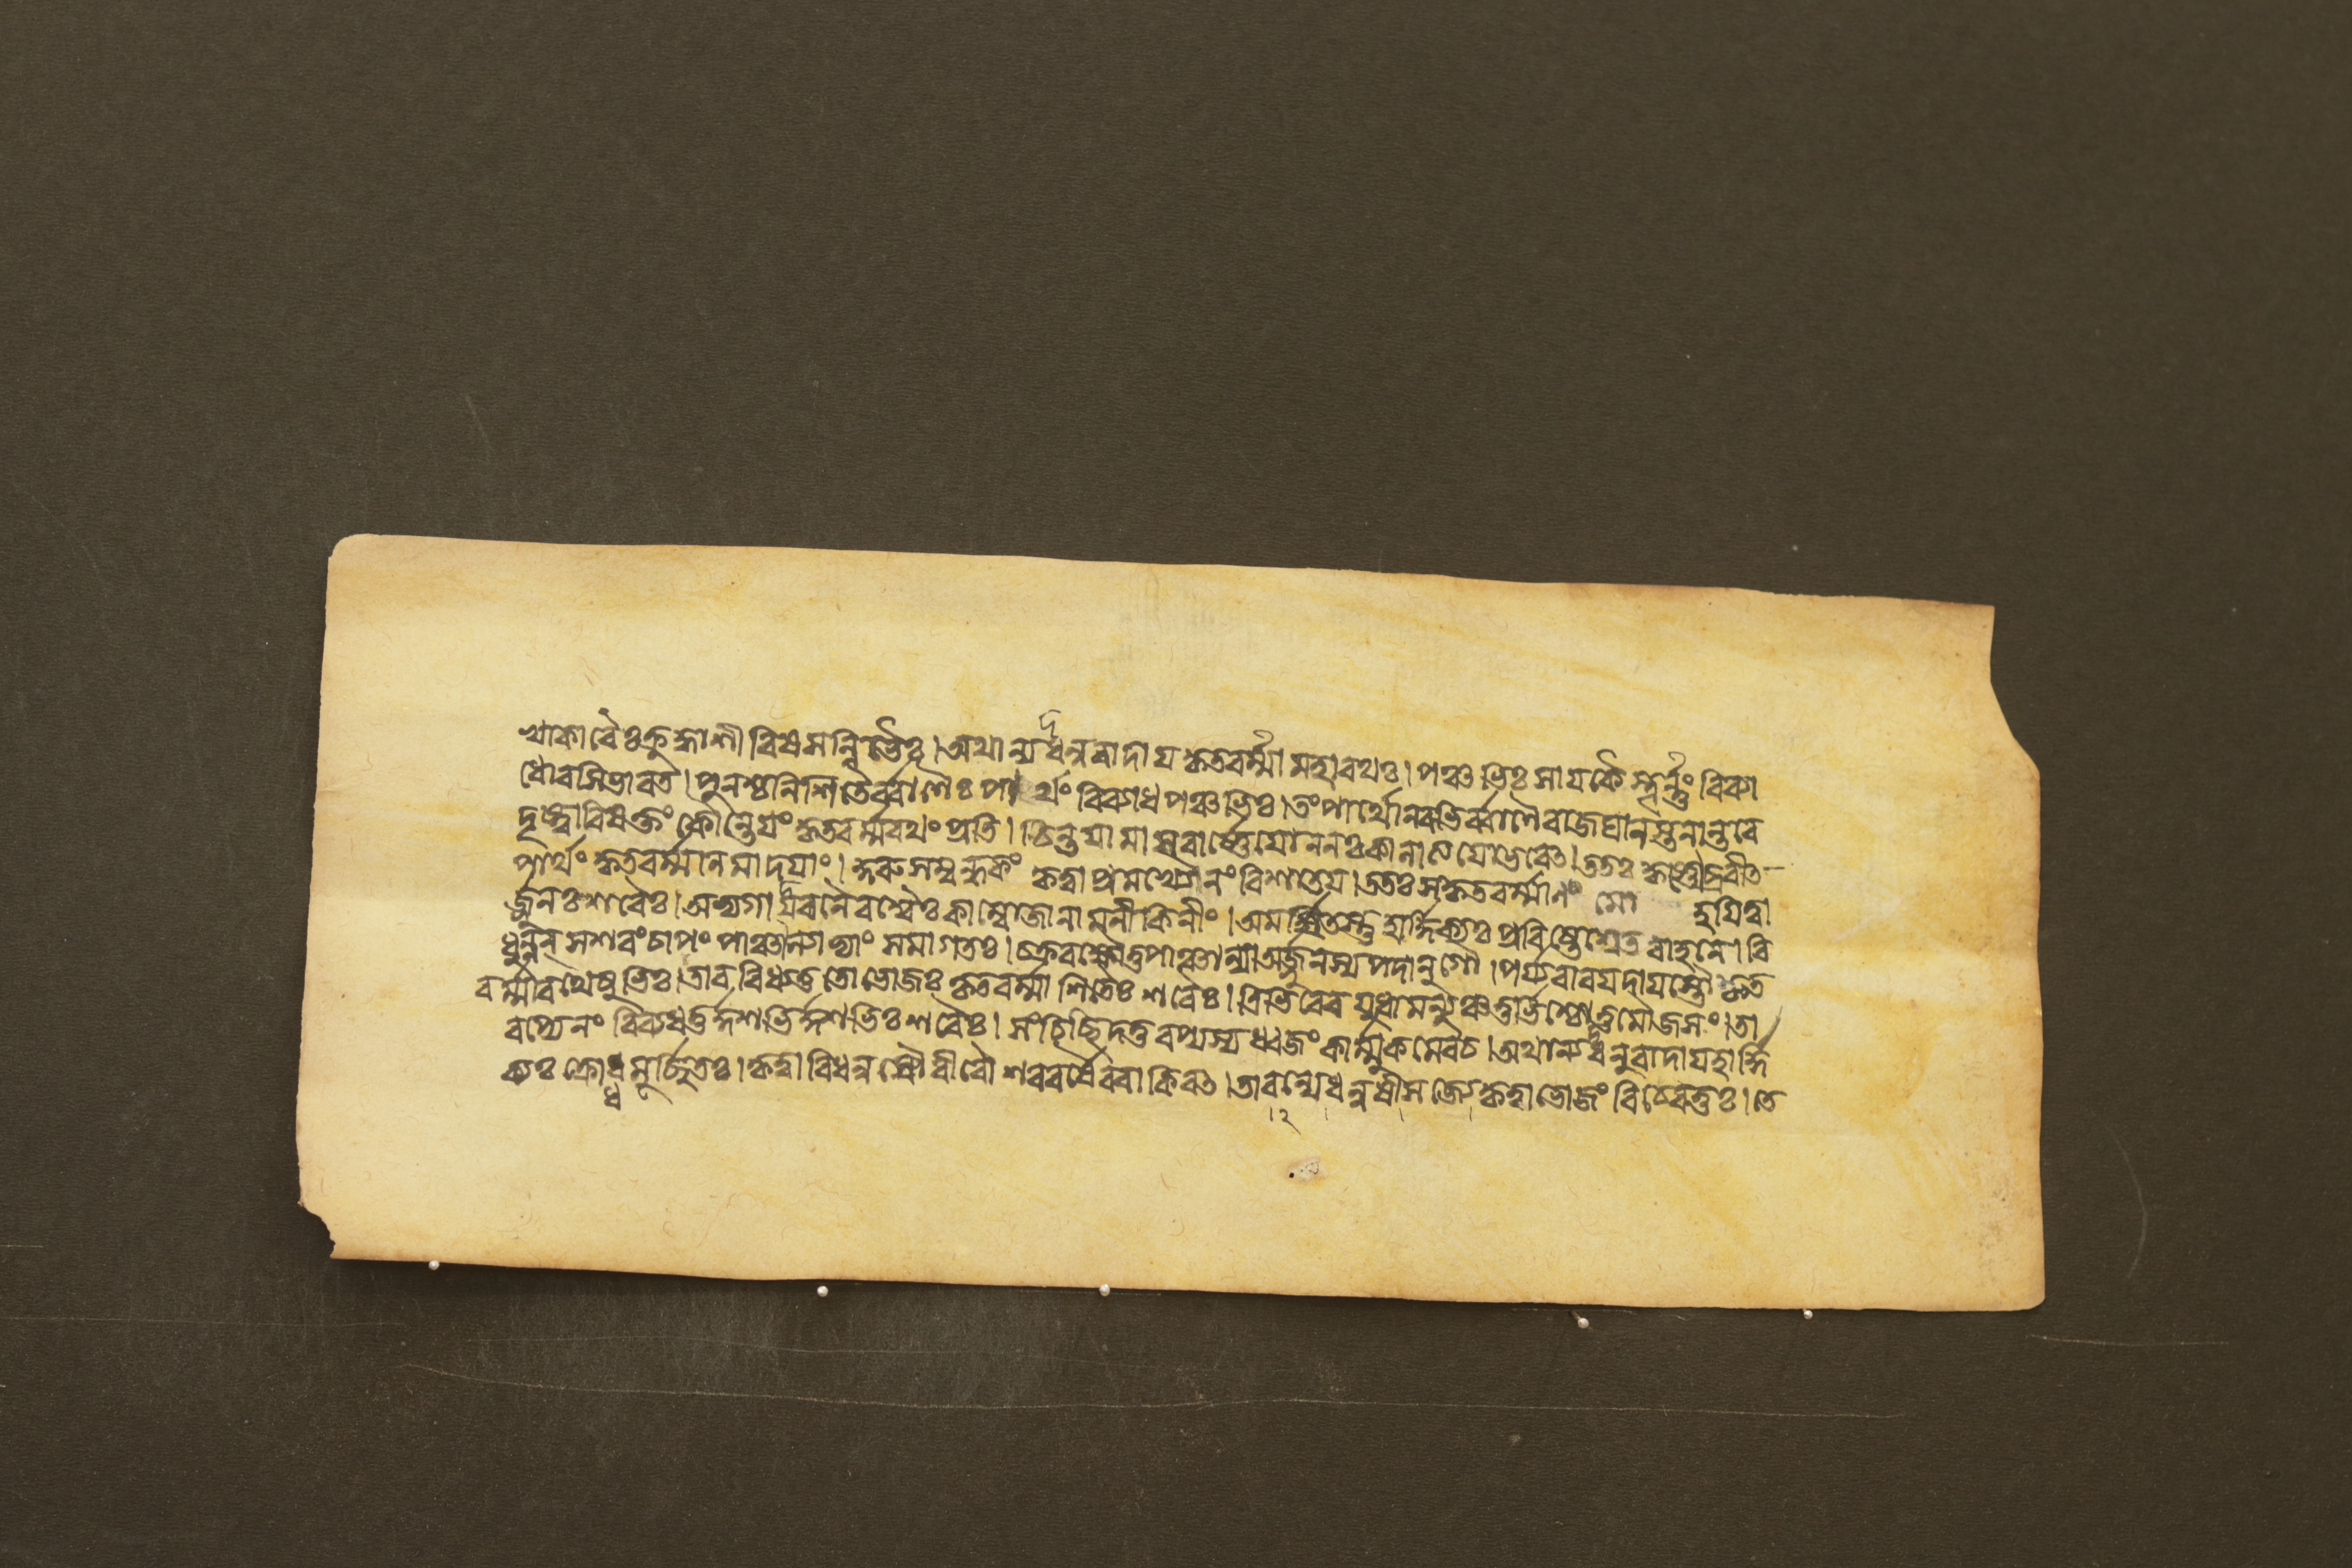 খাকারৈঃ ক্রুদ্ধাশীবিষসন্নিভৈঃ। অথান্যদ্ধনুরাদায কৃতবর্ম্মা মহারথঃ। পঞ্চভিঃ সাযকৈস্তূর্ন্নং বিব্যা
ধোরসি ভারত। পুনশ্চ নিশিতৈর্ব্বাণৈঃ পার্থং বিব্যাধ পঞ্চভিঃ। তং পার্থো নবভির্ব্বাণৈরাজঘান স্তনান্তরে
দৃষ্ট্বা বিষক্তং কৌন্তেযং কৃতবর্ম্মরথং প্রতি। চিন্তযামাস বার্ষ্ণেযো ন নঃ কালাত্যযো ভবেৎ। ততঃ কৃষ্ণোব্রবীত
পার্থং কৃতবর্ম্মানি মা দযাং। কুরু সম্বন্ধকং কৃত্বা প্রমথ্যৈনং বিশাতয। ততঃ স কৃতবর্ম্মাণং মোহযিত্বা
র্জ্জুনঃ শরৈঃ। অভ্যগাজ্জবনৈরশ্বৈঃ কাম্বোজানামনীকিনীং। অমর্ষিতস্তু হার্দ্দিক্যঃ প্রবিষ্টে শ্বেতবাহনে। বি
ধুন্বন্ সশরং চাপং পাঞ্চাল্যাভ্যাং সমাগতঃ। চক্ররক্ষৌ তু পাঞ্চাল্যা অর্জ্জুনস্য পদানুগৌ। পর্য্যবারযদাযান্তৌ কৃত
বর্ম্মা রথেষুভিঃ। তাববিধ্যত্ততো ভোজঃ কৃতবর্ম্মা শিতৈঃ শরৈঃ। ত্রিভিরেব যুধামন্যুঞ্চতুর্ভিশ্চোত্তমৌজসং। তা
বপ্যেনং বিব্যধতুর্দ্দশভির্দ্দশভিঃ শরৈঃ। সংচিচ্ছিদতুরপ্যস্য ধ্বজং কার্ম্মুকমেব চ। অথান্যদ্ধনুরাদায হার্দ্দি
ক্যঃ ক্রোধমূর্চ্ছিতঃ। কৃত্বা বিধনুষৌ বীরৌ শরবর্ষৈরবাকিরৎ। তাবন্যে ধনুষী সজ্যে কৃত্বা ভোজং বিজঘ্নতুঃ। তে